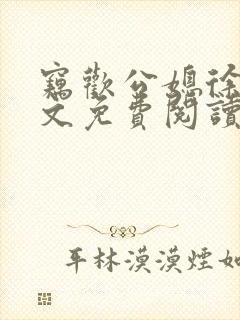 竊歡公媳徐
文免費閱讀
平林漠漠煙如